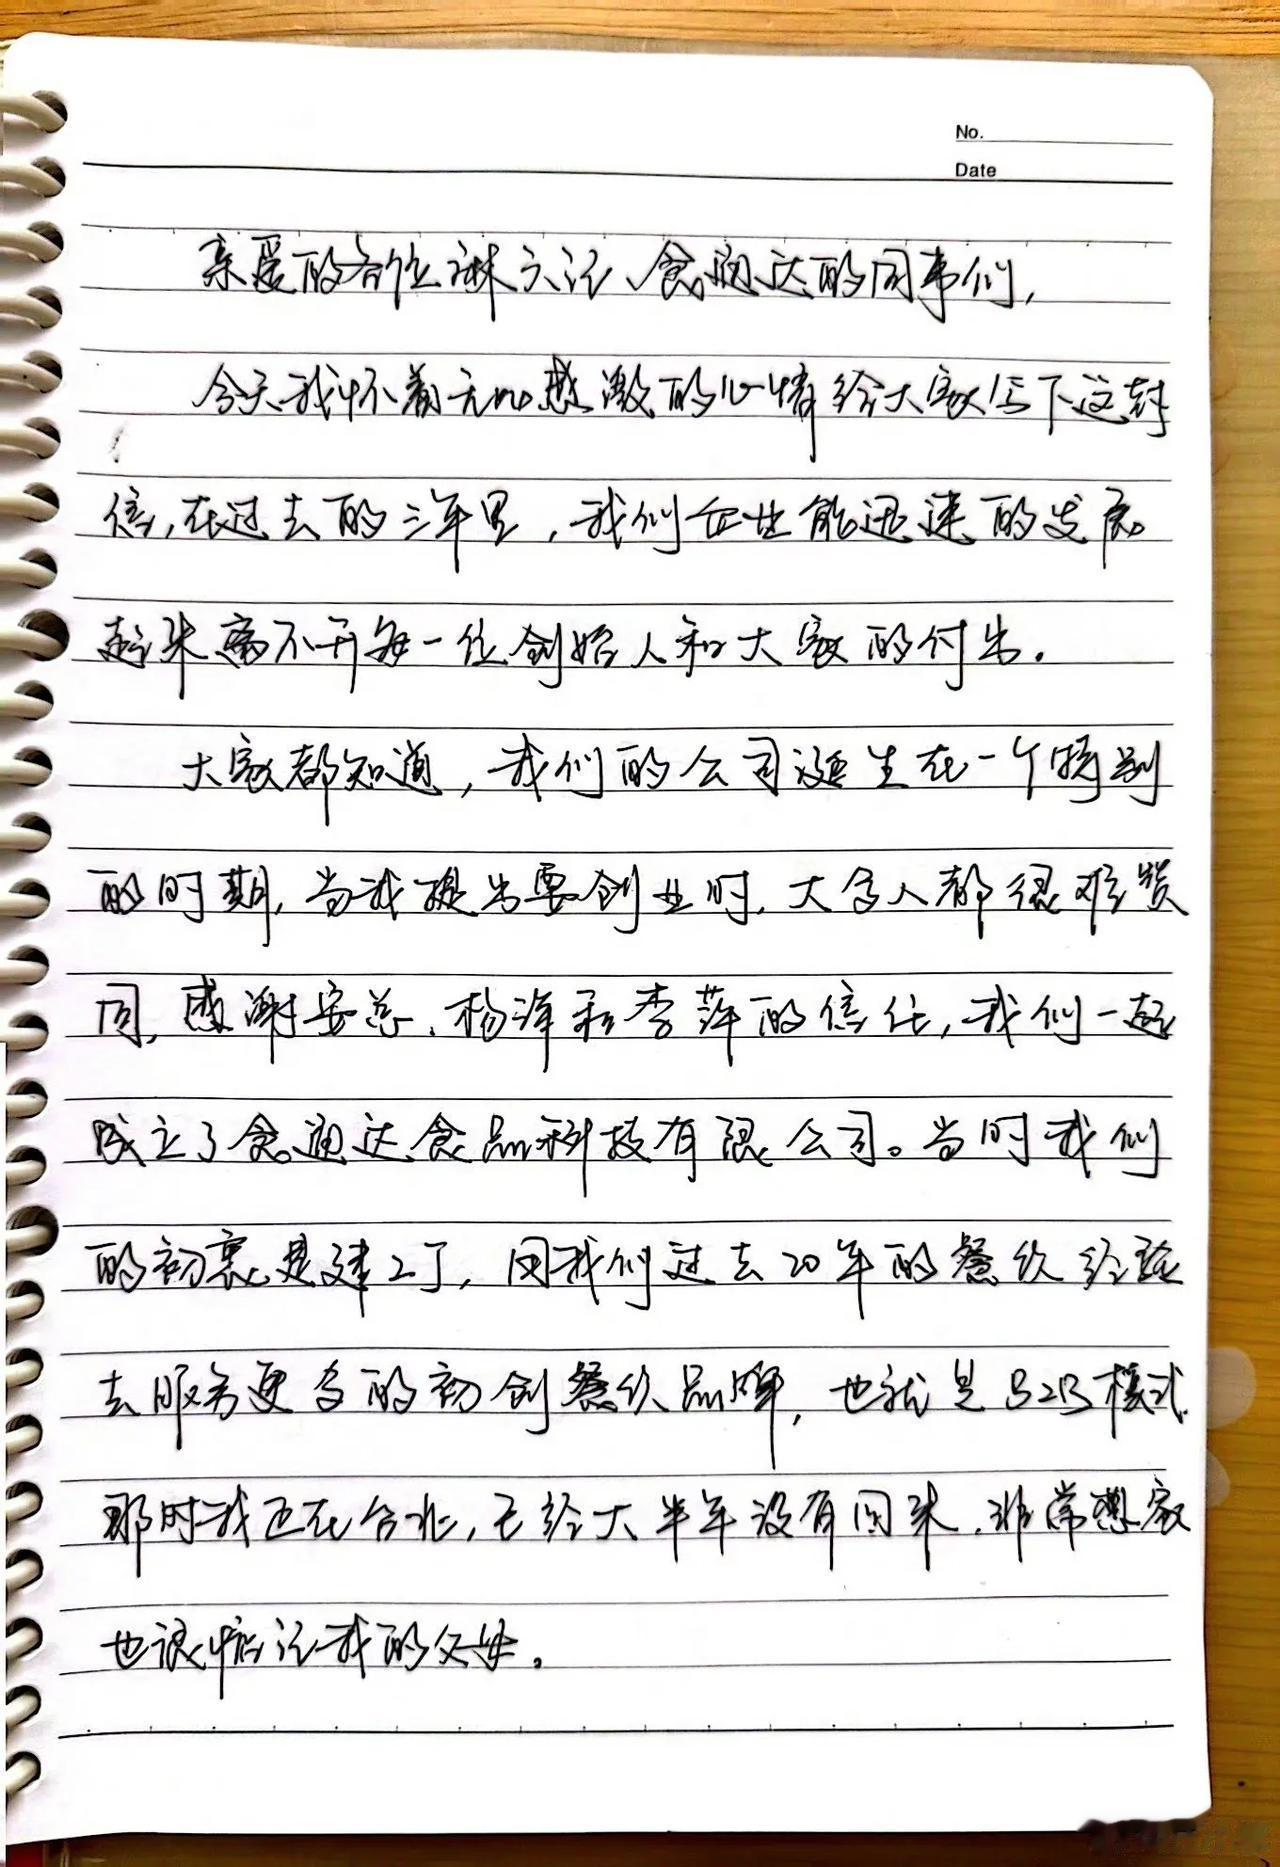 No.
Date
亲爱的各位谢六记、食通达的同事们，
今天我怀着无比感激的心情给大家写下这封
信，在过去的三年里，我们企业能迅速的发展
起来离不开每一位创始人和大家的付出。
大家都知道，我们的公司诞生在一个特别
的时期，当我提出要创业时，大多人都很难赞
同，感谢安总、杨洋和李萍的信任，我们一起
成立了食通达食品科技有限公司。当时我们
的初衷是建工厂，用我们过去20年的餐饮经验
去服务更多的初创餐饮品牌，也就是B2B模式
那时我还在台北，已经大半年没有回来，非常想家
也很惦记我的父母。